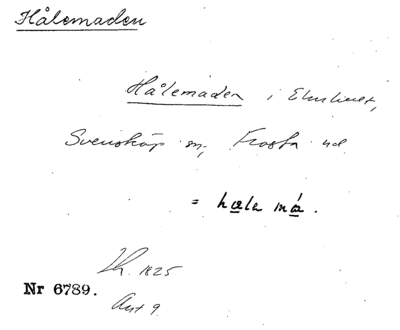 Hålemaden
Hålemaden i Elmhuset,
Svensköp sn, Frosta hd
= hale má.
Lh. 1825
Nr 6789.
Ant 9.